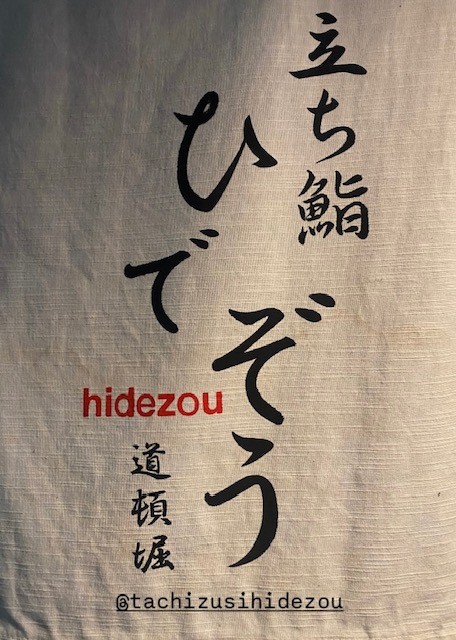 立ち鮨
ひでぞう
hidezou
道頓堀
@tachizusihidezou